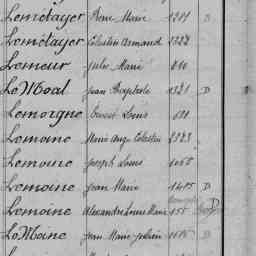 Lemétayer Pierre Marie 1281 D
Lemétayer Célestin Armand 1322
Lemeur Jules Marie 810
Le Moal Jean Baptiste 1321 D
Lemorgne Ernest Louis
Lemoine Marie Ange Célestin 2323
Lemoine Joseph Louis 1066
Lemoine Jean Marie 1415 D
Lemoine Alexandre Louis Marie 155 D
Le Moine Jean Marie Julien 1615 D